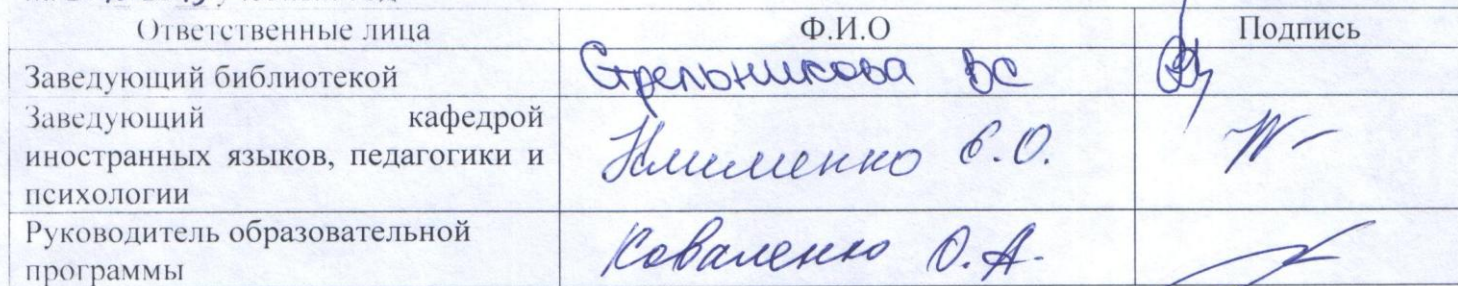 Ответственные лица Ф.И.О Подпись
Заведующий библиотекой Стрельникова ВС
Заведующий кафедрой
иностранных языков, педагогики и
психологии
Клименко Е.О.
Руководитель образовательной
программы
Коваленко О.А.